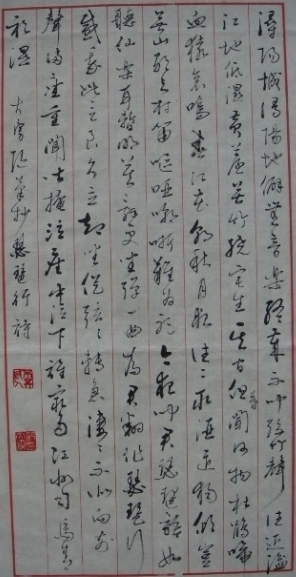 潯陽城潯陽地僻無音樂終歲不聞絲竹聲住近湓
江地低濕黃蘆苦竹繞宅生其聞何物杜鵑啼
血猿哀鳴春江花朝秋月夜往往取酒還獨傾豈
無山歌与村笛嘔啞嘲哳難為聽今夜聞君琵琶語如
聽仙樂耳暫明莫辭更坐彈一曲為君翻作琵琶行
感我此言良久立却坐促弦弦轉急淒淒不似向前
聲滿座重聞皆掩泣座中泣下誰最多江州司馬青
衫濕 抄琵琶行詩